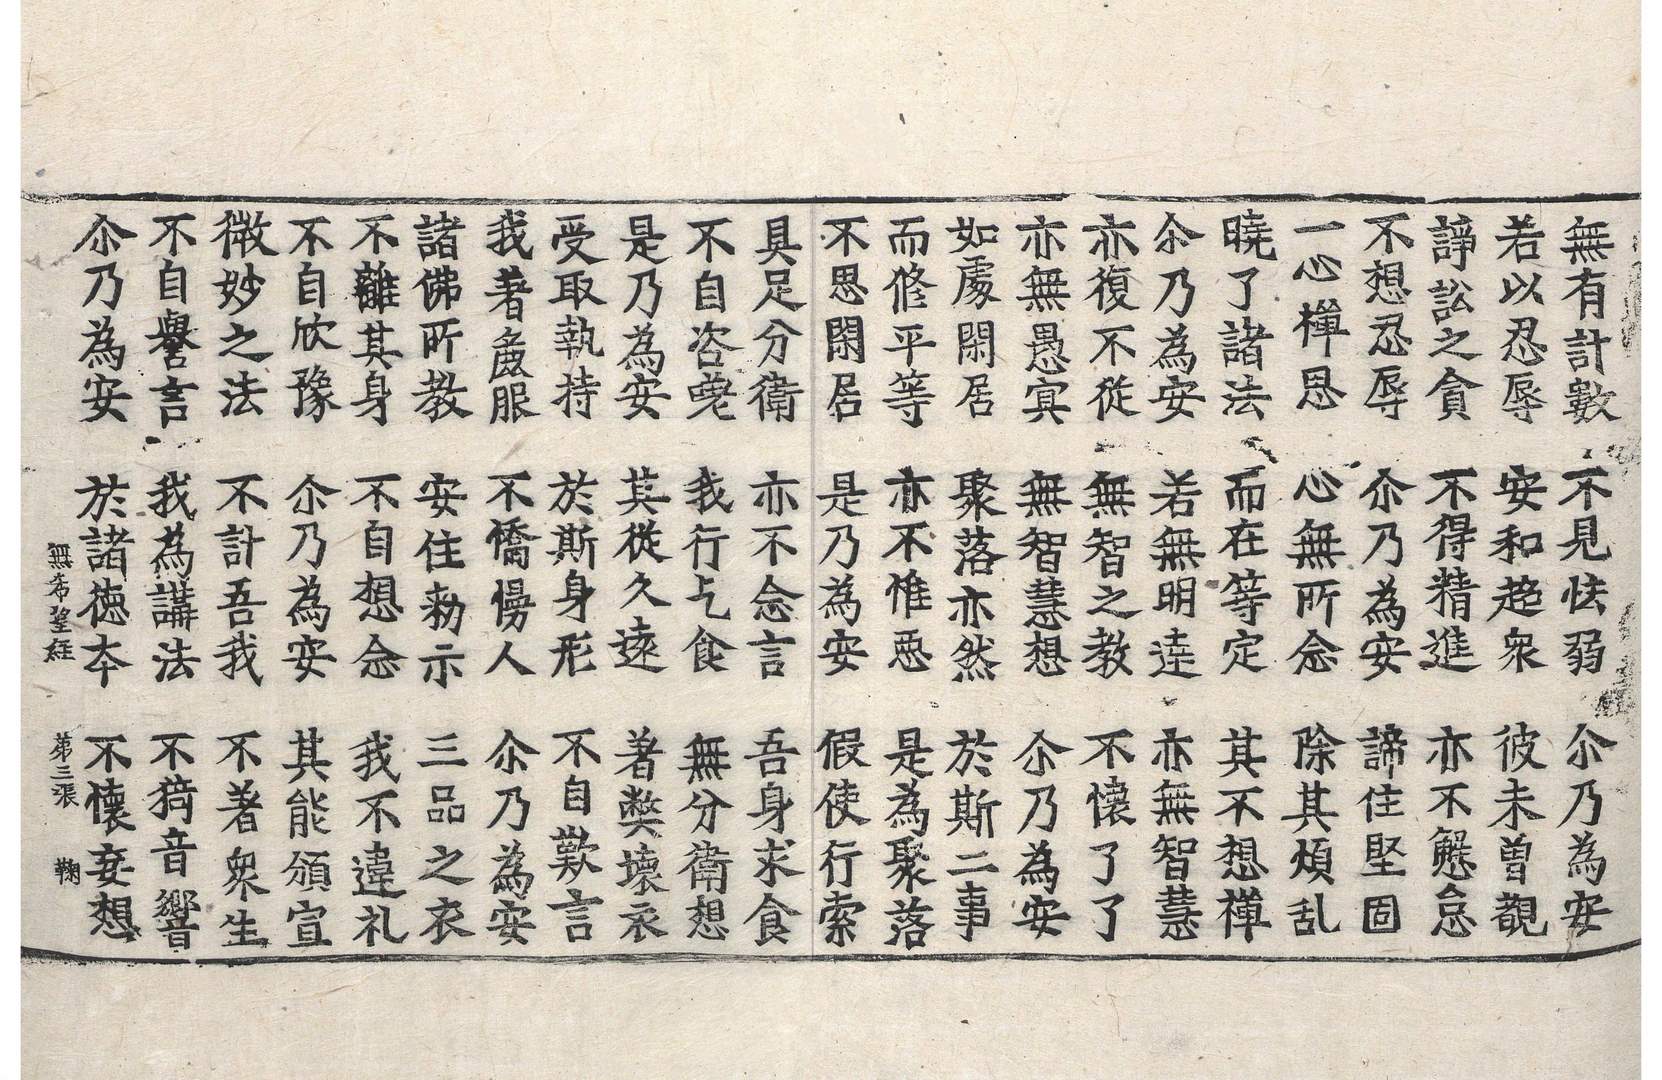 無有計數 不見怯弱 尒乃為安
若以忍辱 安和趍衆 彼未曽覩
諍訟之貪 不得精進 亦不懈怠
不想忍辱 尒乃為安 諦住堅固
一心禪思 心無所念 除其煩乱
曉了諸法 而在等定 其不想禪
尒乃為安 若無明逹 亦無智慧
亦復不從 無智之教 不懷了了
亦無愚冥 無智慧想 尒乃為安
如處閑居 聚落亦然 於斯二事
而修平等 亦不惟惡 是為聚落
不思閑居 是乃為安 假使行索
具足分衛 亦不念言 吾身求食
不自咨嗟 我行乞食 無分衛想
是乃為安 其從久遠 著弊壞衣
受取執持 於斯身形 不自歎言
我著麁服 不憍慢人 尒乃為安
諸佛所教 安住勑示 三品之衣
不離其身 不自想念 我不違礼
不自欣豫 尒乃為安 其能頒宣
微妙之法 不計吾我 不著衆生
不自譽言 我為講法 不猗音響
尒乃為安 於諸德本 不懷妄想
無希望経 第三張 鞠